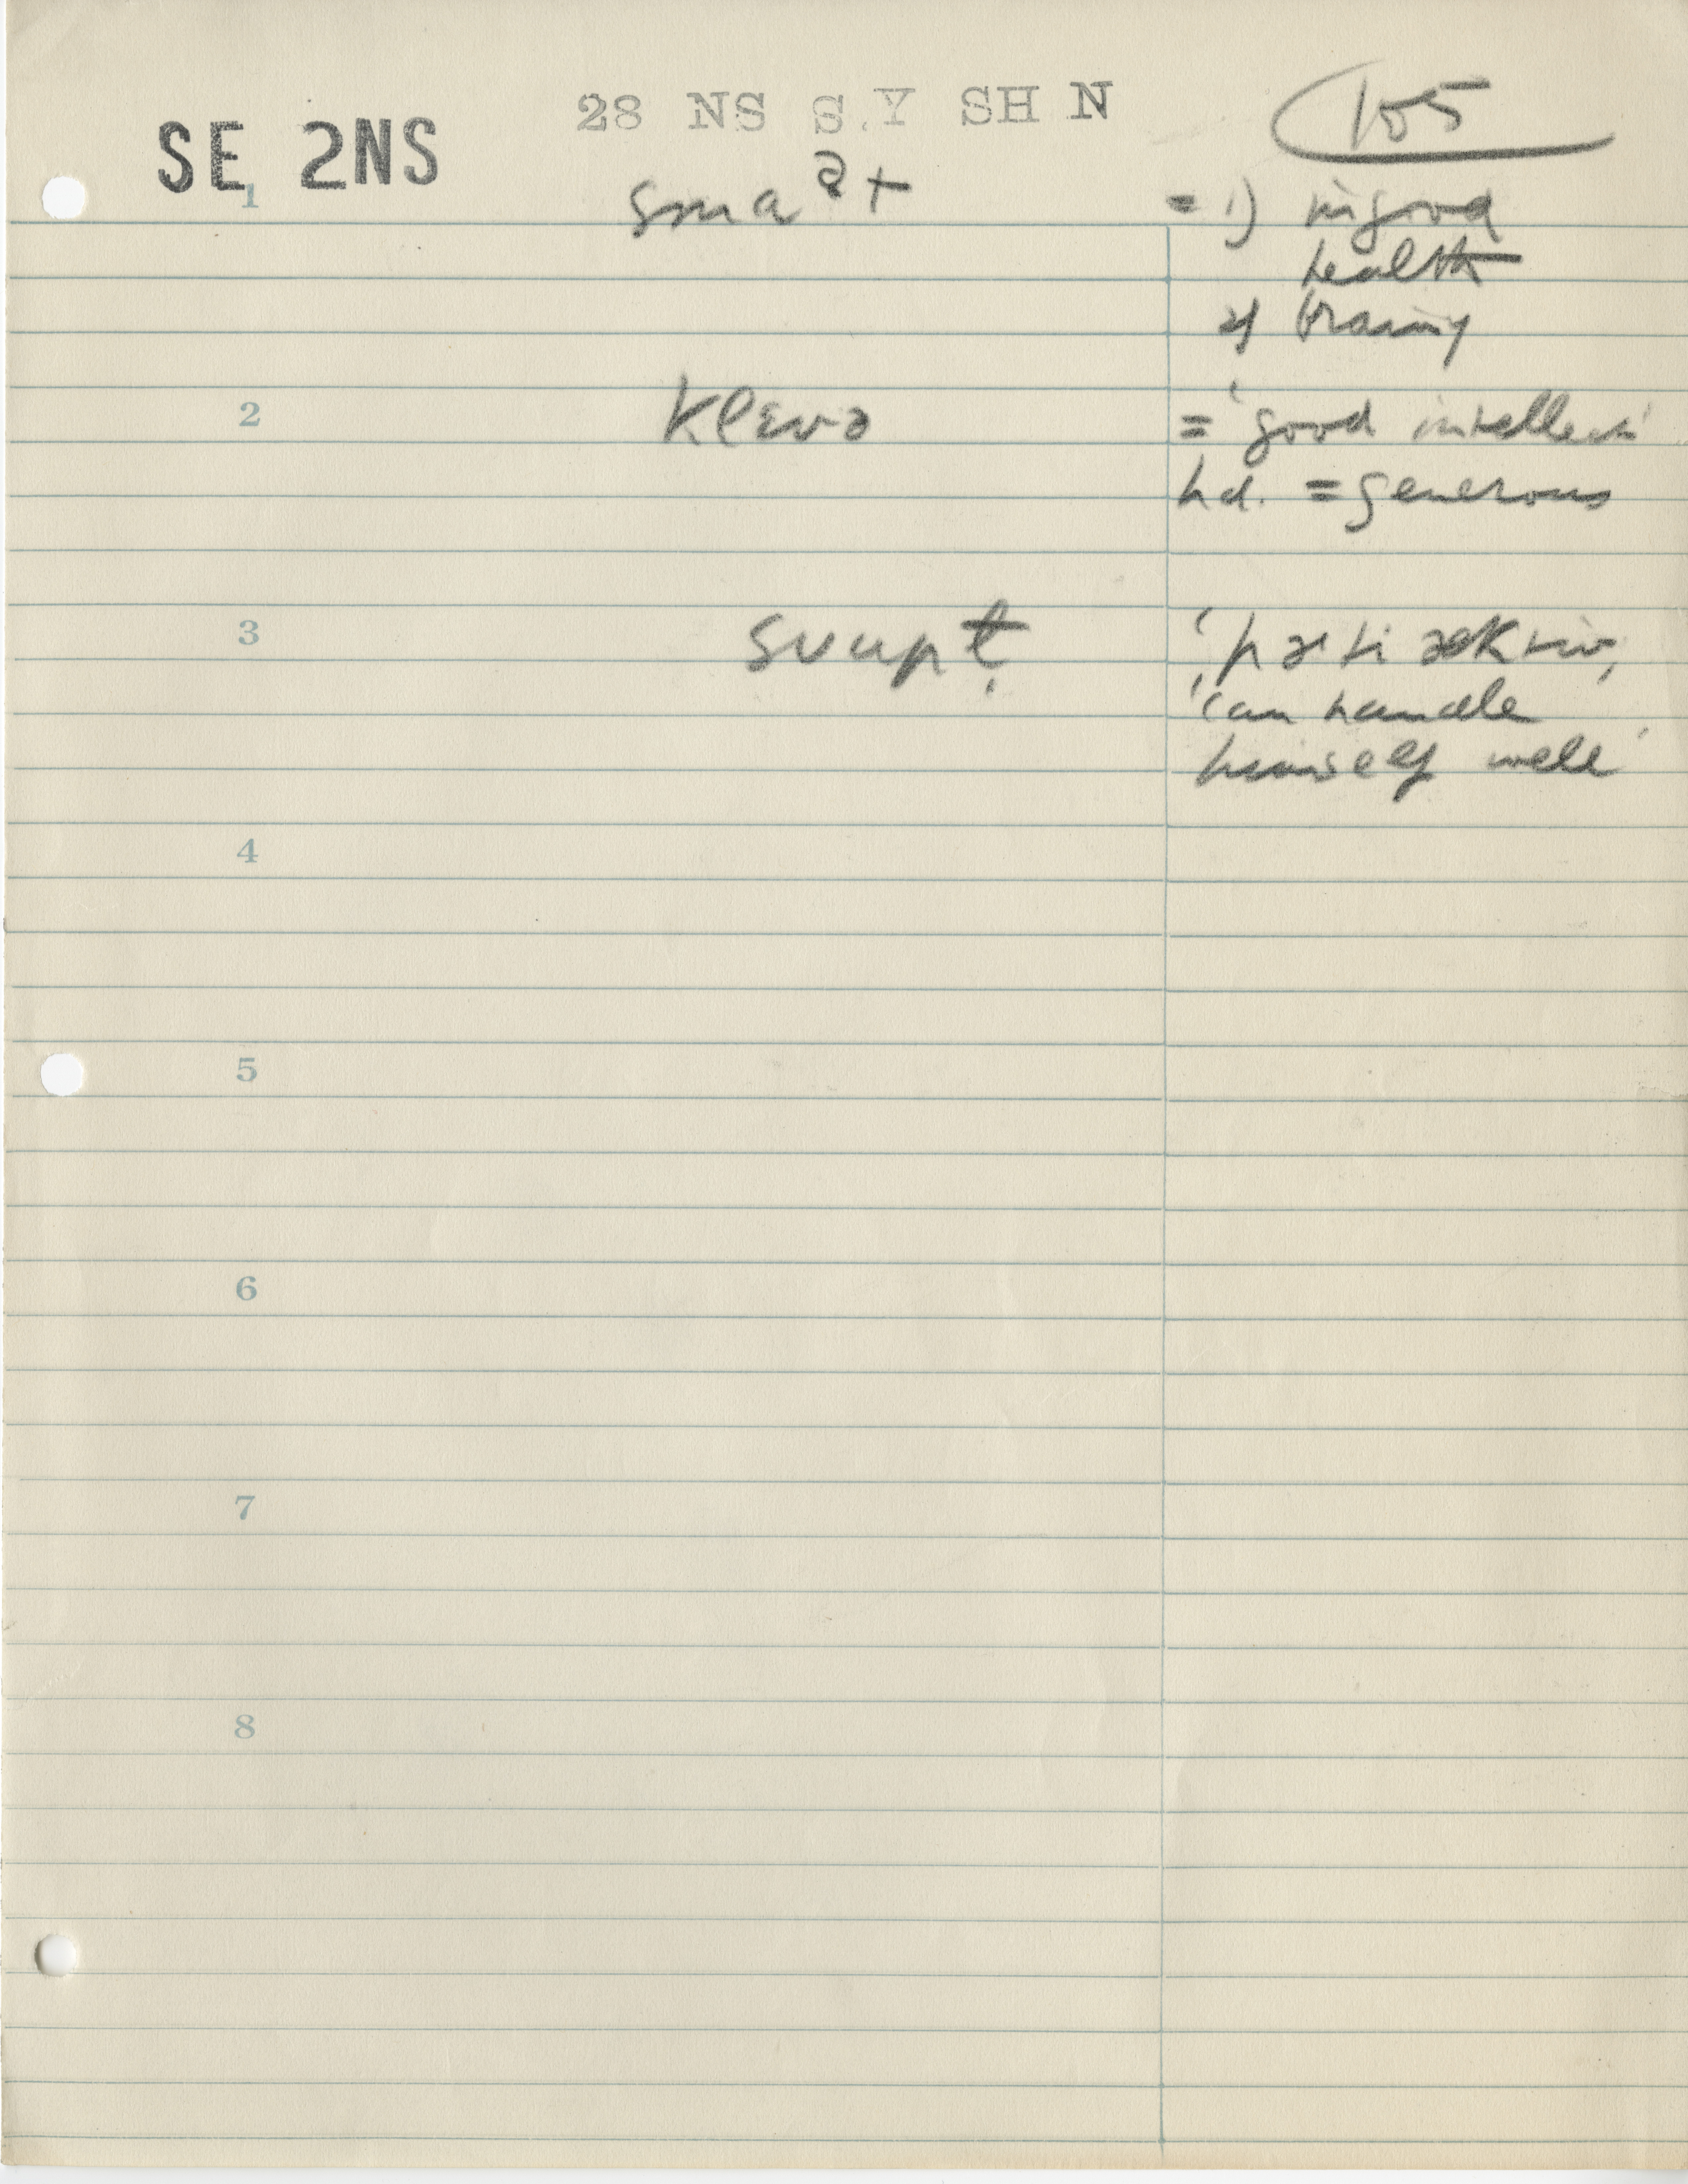 28 NS S.Y SH N
105
SE 2NS
1 smaᵊt = 1) in good
health
2) brainy
2 klɛvə = 'good intellect'
hd. = generous
3 'pəti æktiv,
'can handle
himself well'
4
5
6
7
8